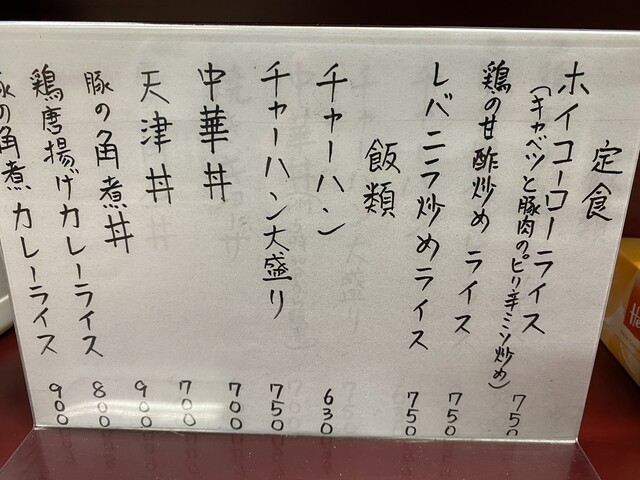 定食
ホイコーローライス 750
(キャベツと豚肉のピリ辛ミソ炒め)
鶏の甘酢炒めライス 750
レバニラ炒めライス 750
飯類
チャーハン 630
チャーハン大盛り 750
中華丼 700
天津丼 700
豚の角煮丼 900
鶏唐揚げカレーライス 800
豚の角煮カレーライス 900